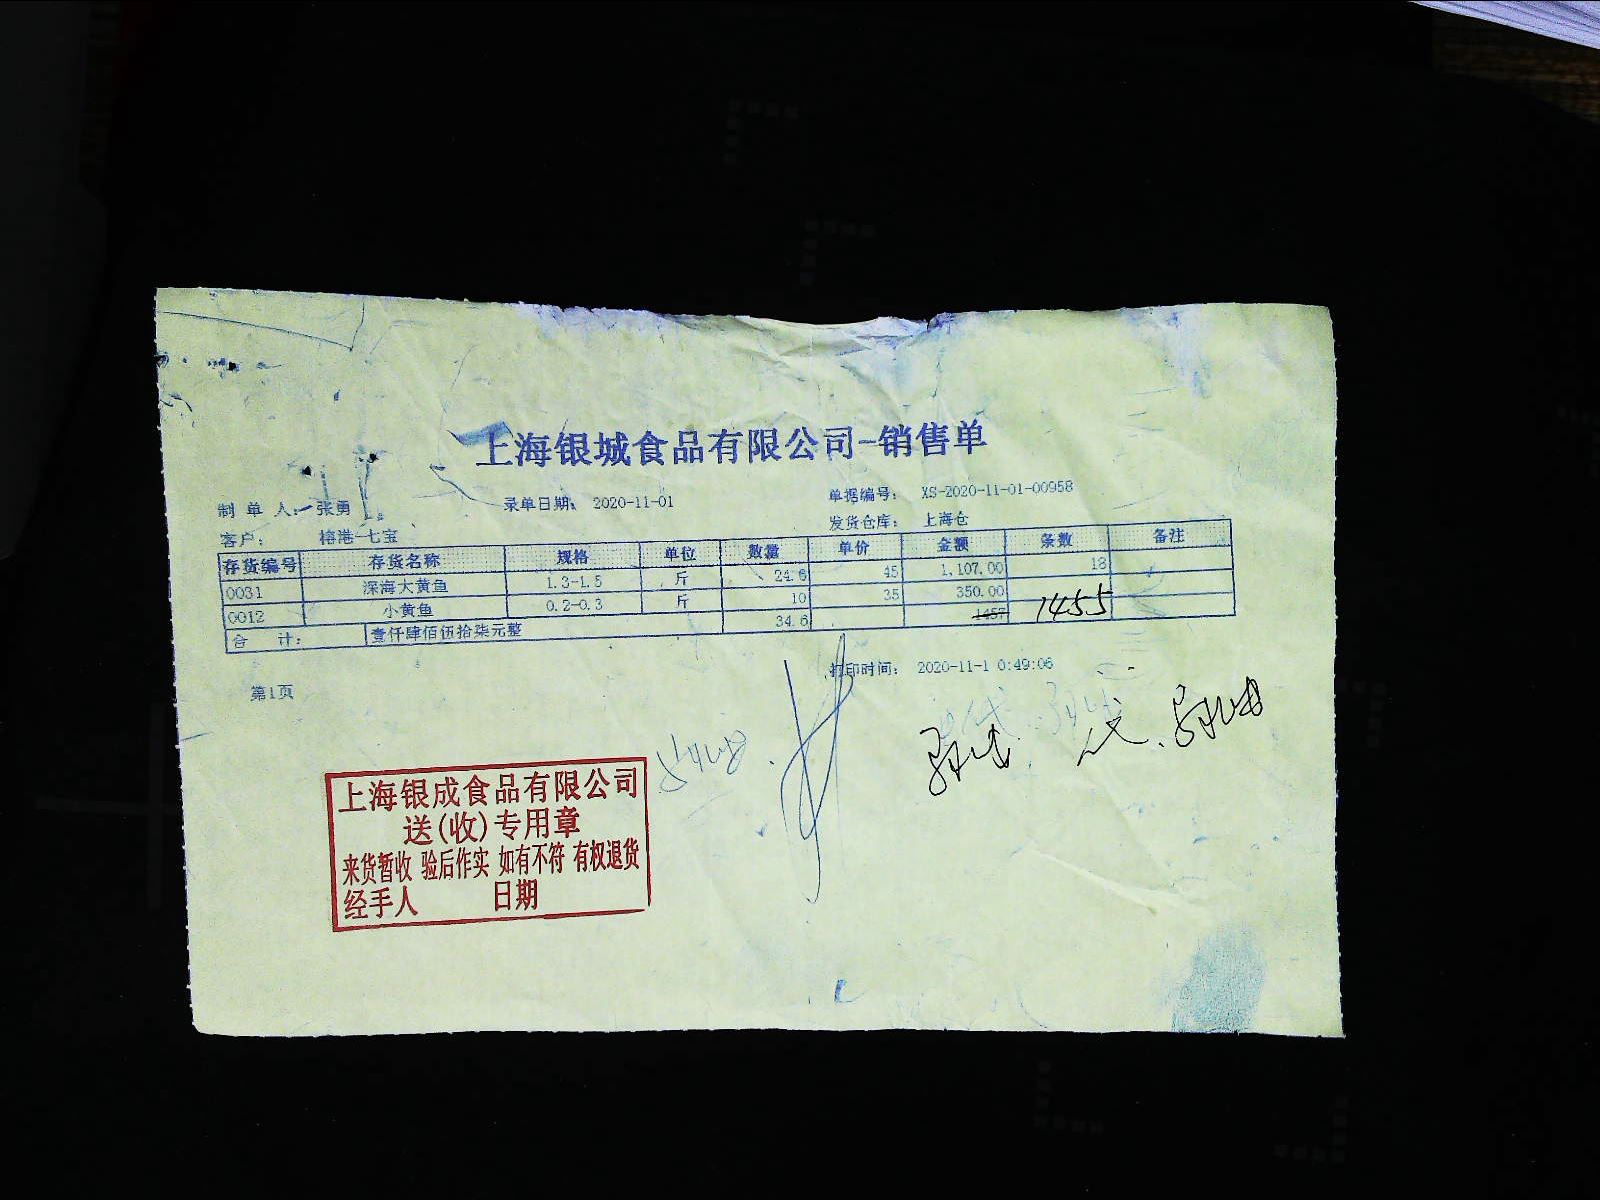 上海银城食品有限公司-销售单
制 单 人: 张勇 录单日期: 2020-11-01 单据编号: XS-2020-11-01-00958
客户: 榕港-七宝 发货仓库: 上海仓
存货编号 存货名称 规格 单位 数量 单价 金额 条数 备注
0031 深海大黄鱼 1.3-1.5 斤 24.6 45 1,107.00 18
0012 小黄鱼 0.2-0.3 斤 10 35 350.00
合 计: 壹仟肆佰伍拾柒元整 34.6 1457 1455
打印时间: 2020-11-1 0:49:06
第1页
上海银成食品有限公司
送(收)专用章
来货暂收 验后作实 如有不符 有权退货
经手人 日期